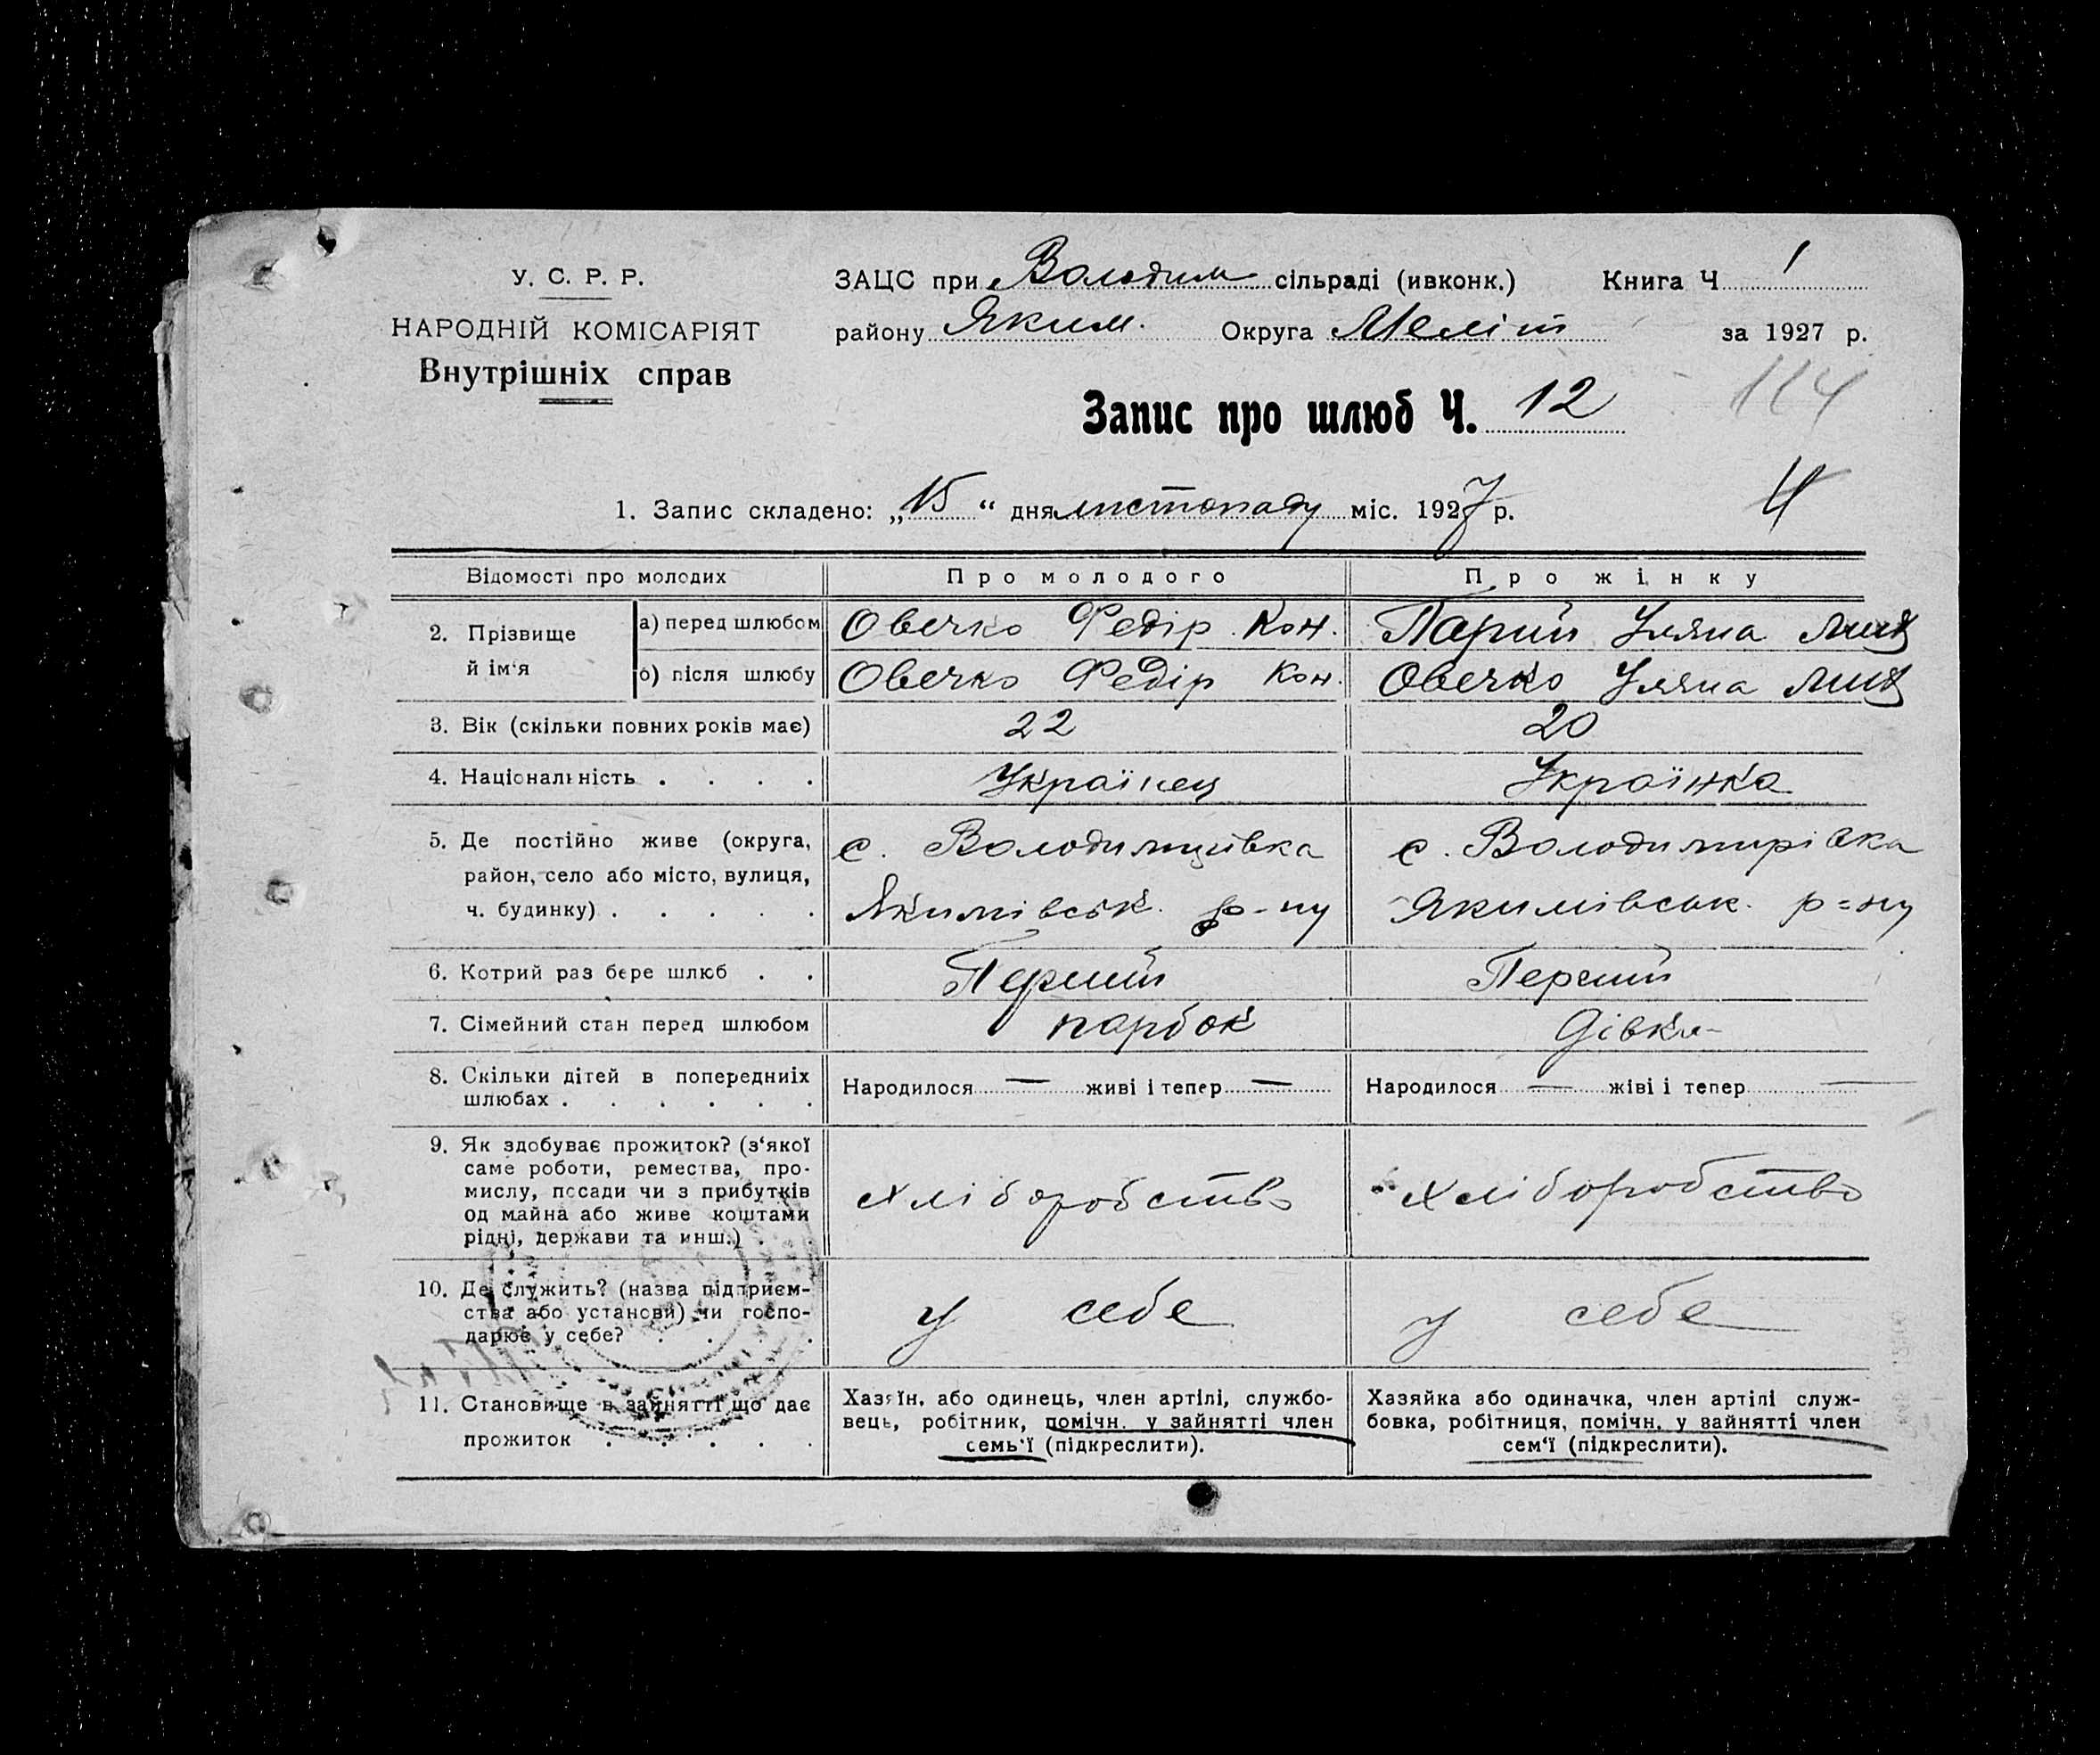 У. С. Р. Р.
НАРОДНІЙ КОМІСАРІЯТ
Внутрішніх справ
ЗАЦС при Володим сільраді (ивконк.) Книга Ч 1
району Яким. Округа Меліт за 1927 р.
114
Запис про шлюб Ч. 12
1. Запис складено: „15“ дня листопаду міс. 1927 р.
Відомості про молодих Про молодого Про жінку
2. Прізвище й ім‘я
а) перед шлюбом Овечко Федір Кон. Парий Уляна
б) після шлюбу Овечко Федір Кон. Овечко Уляна
3. Вік (скільки повних років має) 22 20
4. Національність . . . . Українец Українка
5. Де постійно живе (округа, с. Володимирівка с. Володимирівка
район, село або місто, вулиця,
ч. будинку) . . . . . Якимівськ. р-ну Якимівськ. р=ну
6. Котрий раз бере шлюб . . Перший Перший
7. Сімейний стан перед шлюбом парбок Дівка
8. Скільки дітей в попередниіх
шлюбах . . . . . . Народилося — живі і тепер — Народилося — жіві і тепер —
9. Як здобуває прожиток? (з‘якої
саме роботи, ремества, про-
мислу, посади чи з прибутків
од майна або живе коштами
рідні, держави та инш.) . . хліборобство хліборобство
10. Де служить? (назва підприєм-
ства або установи) чи госпо-
дарює у себе? . . . . у себе у себе
11. Становище в зайнятті що дає
прожиток . . . . .
Хазяїн, або одинець, член артілі, службо-
вець, робітник, помічн. у зайнятті член
семь‘ї (підкреслити).
Хазяйка або одиначка, член артілі служ-
бовка, робітниця, помічн. у зайнятті член
сем‘ї (підкреслити).